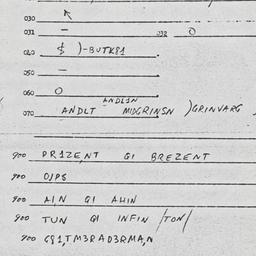 030
031 — 032 0
040 $ )-BUTK81
050 —
060 0
ANDL1N
070 ANDLT MIDGRINSN )GRINVARG
900 PR1ZENT GI BREZENT
900 O/PS
900 AIN GI AHIN
900 TUN GI INFIN /TON/
900 G81,TM3RAD3RMA,N